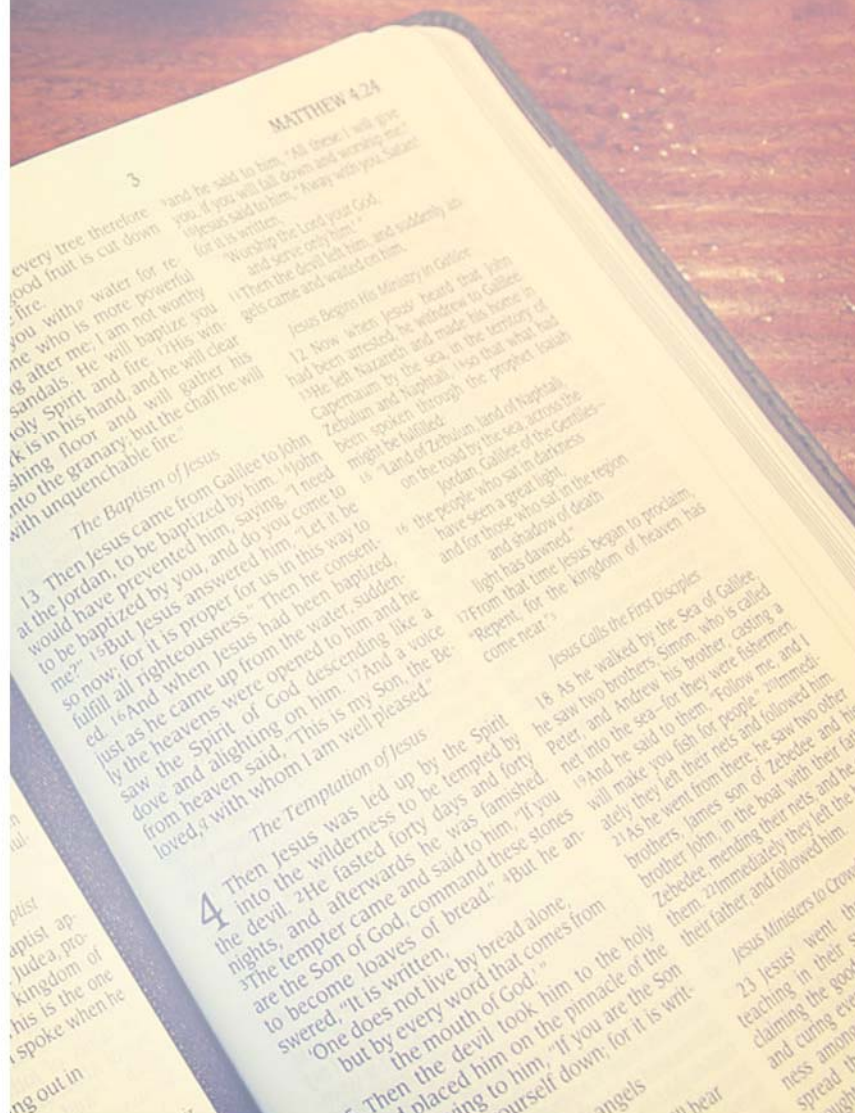 MATTHEW 4:24
3
every tree therefore
good fruit is cut down
fire.
you with water for re-
one who is more powerful
g after me; I am not worthy
sandals. He will baptize you
oly Spirit and fire. 12His win-
rk is in his hand, and he will clear
shing floor and will gather his
into the granary; but the chaff he will
with unquenchable fire.”
The Baptism of Jesus
13 Then Jesus came from Galilee to John
at the Jordan, to be baptized by him. 14John
would have prevented him, saying, “I need
to be baptized by you, and do you come to
me?” 15But Jesus answered him, “Let it be
so now; for it is proper for us in this way to
fulfill all righteousness.” Then he consent-
ed. 16And when Jesus had been baptized,
just as he came up from the water, sudden-
ly the heavens were opened to him and he
saw the Spirit of God descending like a
dove and alighting on him. 17And a voice
from heaven said, “This is my Son, the Be-
loved,q with whom I am well pleased.”
The Temptation of Jesus
4 Then Jesus was led up by the Spirit
into the wilderness to be tempted by
the devil. 2He fasted forty days and forty
nights, and afterwards he was famished.
3The tempter came and said to him, “If you
are the Son of God, command these stones
to become loaves of bread.” 4But he an-
swered, “It is written,
‘One does not live by bread alone,
but by every word that comes from
the mouth of God.’”
Then the devil took him to the holy
placed him on the pinnacle of the
ing to him, “If you are the Son
ourself down; for it is writ-
angels
bear
9and he said to him, “All these I will give
you, if you will fall down and worship me.”
10Jesus said to him, “Away with you, Satan!
for it is written,
‘Worship the Lord your God,
and serve only him.’”
11Then the devil left him, and suddenly an-
gels came and waited on him.
Jesus Begins His Ministry in Galilee
12 Now when Jesus heard that John
had been arrested, he withdrew to Galilee.
13He left Nazareth and made his home in
Capernaum by the sea, in the territory of
Zebulun and Naphtali, 14so that what had
been spoken through the prophet Isaiah
might be fulfilled:
15 “Land of Zebulun, land of Naphtali,
on the road by the sea, across the
Jordan, Galilee of the Gentiles—
16 the people who sat in darkness
have seen a great light,
and for those who sat in the region
and shadow of death
light has dawned.”
17From that time Jesus began to proclaim,
“Repent, for the kingdom of heaven has
come near.”
Jesus Calls the First Disciples
18 As he walked by the Sea of Galilee,
he saw two brothers, Simon, who is called
Peter, and Andrew his brother, casting a
net into the sea—for they were fishermen.
19And he said to them, “Follow me, and I
will make you fish for people.” 20Immedi-
ately they left their nets and followed him.
21As he went from there, he saw two other
brothers, James son of Zebedee and his
brother John, in the boat with their fath
Zebedee, mending their nets, and he
them. 22Immediately they left the b
their father, and followed him.
Jesus Ministers to Crow
23 Jesus went th
teaching in their s
claiming the good
and curing eve
ness among
spread th
ptist
aptist ap-
Judea, pro-
kingdom of
his is the one
spoke when he
ng out in